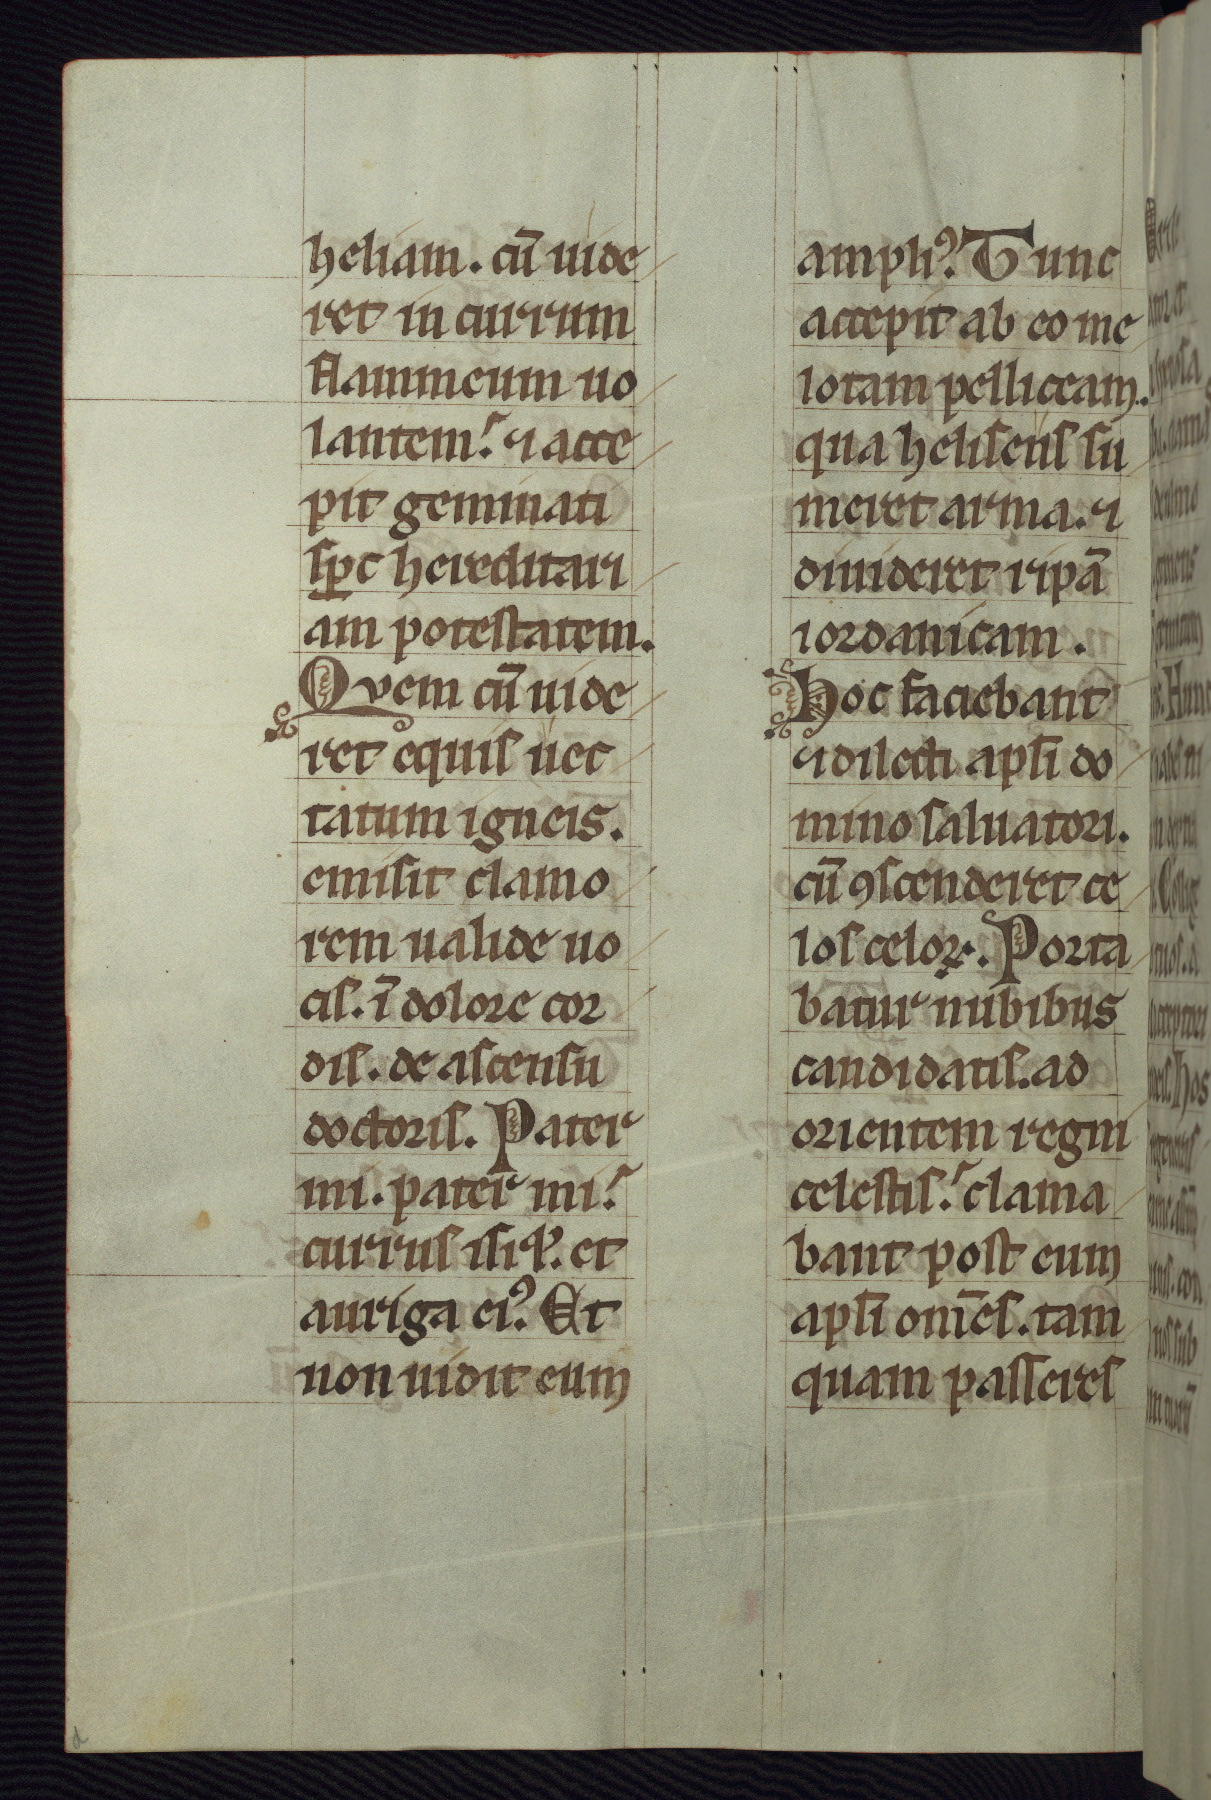 heliam. cū uide
ret in currum
flammeum uo
lantem. ⁊ acce
pit geminati
sꝑc hereditari
am potestatem.
Qvem cū uide
ret equis uec
tatum igneis.
emisit clamo
rem ualide uo
cis. ī dolore cor
dis. de ascensu
doctoris. Pater
mi. pater mi.
currus isrꝉ. et
auriga eiꝰ. Et
non uidit eum
ampliꝰ. Tunc
accepit ab eo me
lotam pelliceam.
qua heliseus su
meret arma. ⁊
diuideret ripā
iordanicam.
Hoc faciebant
⁊ dilecti apłi do
mino saluatori.
cū ꝯscenderet ce
los celoꝝ. Porta
batur nubibus
candidatis. ad
orientem regni
celestis. clama
bant post eum
apłi om̄es. tam
quam passeres